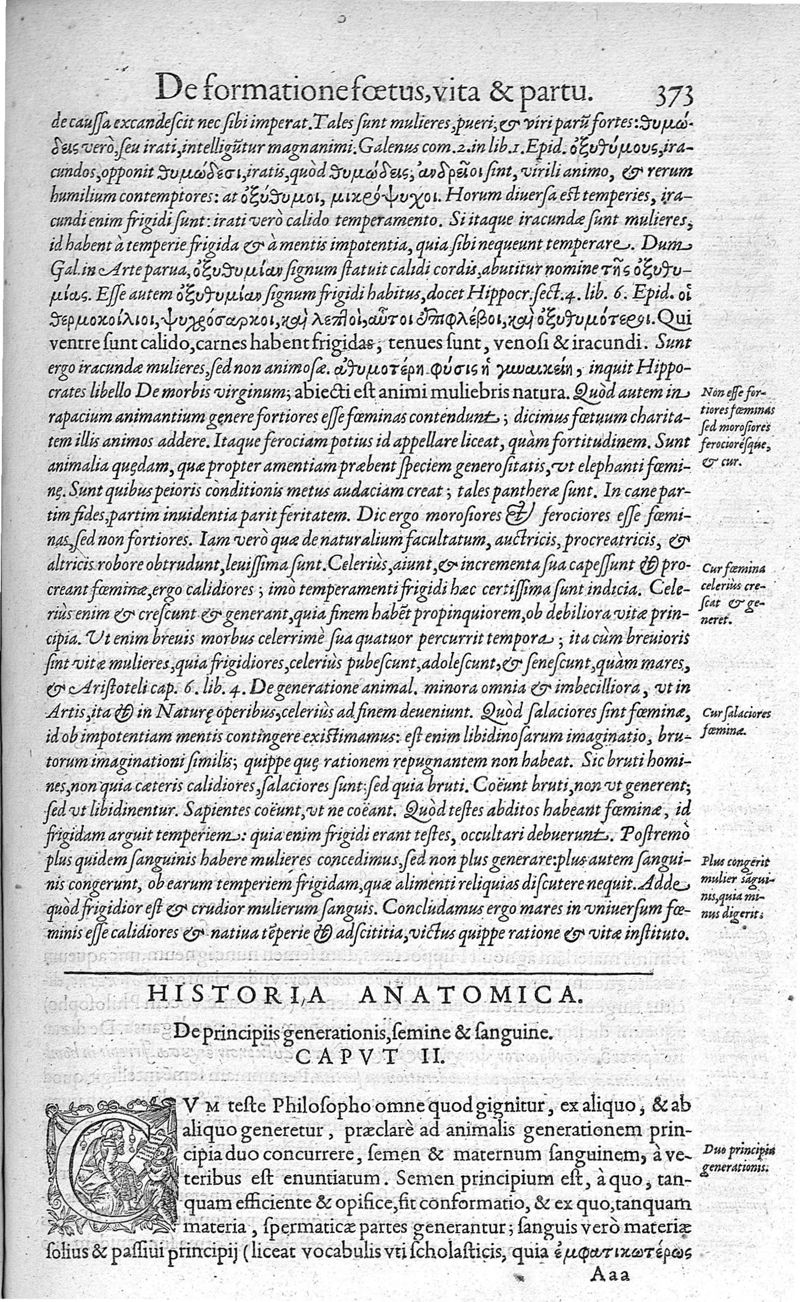 De formatione fœtus, vita & partu. 373
de caussa excandescit nec sibi imperat. Tales sunt mulieres, pueri, & viri parũ fortes: θυμώ-
δεις verò, seu irati, intelligũtur magnanimi. Galenus com. 2. in lib. 1. Epid. ὀξυθύμους, ira-
cundos, opponit θυμώδεσι, iratis, quòd θυμώδεις, ἀνδρεῖοι sint, virili animo, & rerum
humilium contemptores: at ὀξύθυμοι, μικρόψυχοι. Horum diuersa est temperies, ira-
cundi enim frigidi sunt: irati verò calido temperamento. Si itaque iracundæ sunt mulieres,
id habent à temperie frigida & à mentis impotentia, quia sibi nequeunt temperare. Dum
Gal. in Arte parua, ὀξυθυμίαν signum statuit calidi cordis, abutitur nomine τῆς ὀξυθυ-
μίας. Esse autem ὀξυθυμίαν signum frigidi habitus, docet Hippocr. sect. 4. lib. 6. Epid. οἱ
θερμοκοίλιοι, ψυχρόσαρκοι, καὶ λεπτοὶ, αὗτοι ἐπιφλέβοι, καὶ ὀξυθυμότεροι. Qui
ventre sunt calido, carnes habent frigidas, tenues sunt, venosi & iracundi. Sunt
ergo iracundæ mulieres, sed non animosæ. ἀθυμοτέρη φύσις ἡ γυναικείη, inquit Hippo-
crates libello De morbis virginum; abiecti est animi muliebris natura. Quòd autem in
rapacium animantium genere fortiores esse fœminas contendunt; dicimus fœtuum charita-
tem illis animos addere. Itaque ferociam potius id appellare liceat, quàm fortitudinem. Sunt
animalia quędam, quæ propter amentiam præbent speciem generositatis, vt elephanti fœmi-
nę. Sunt quibus peioris conditionis metus audaciam creat; tales pantheræ sunt. In cane par-
tim fides, partim inuidentia parit feritatem. Dic ergo morosiores & ferociores esse fœmi-
nas, sed non fortiores. Iam verò quæ de naturalium facultatum, auctricis, procreatricis, &
altricis robore obtrudunt, leuissima sunt. Celeriùs, aiunt, & incrementa sua capessunt & pro-
creant fœminæ, ergo calidiores; imò temperamenti frigidi hæc certissima sunt indicia. Cele-
riùs enim & crescunt & generant, quia finem habẽt propinquiorem, ob debiliora vitæ prin-
cipia. Vt enim breuis morbus celerrimè sua quatuor percurrit tempora; ita cùm breuioris
sint vitæ mulieres, quia frigidiores, celeriùs pubescunt, adolescunt, & senescunt, quàm mares,
& Aristoteli cap. 6. lib. 4. De generatione animal. minora omnia & imbecilliora, vt in
Artis, ita & in Naturę operibus, celeriùs ad finem deueniunt. Quòd salaciores sint fœminæ,
id ob impotentiam mentis contingere existimamus: est enim libidinosarum imaginatio, bru-
torum imaginationi similis; quippe quę rationem repugnantem non habeat. Sic bruti homi-
nes, non quia cæteris calidiores, salaciores sunt: sed quia bruti. Coëunt bruti, non vt generent;
sed vt libidinentur. Sapientes coëunt, vt ne coëant. Quòd testes abditos habeant fœminæ, id
frigidam arguit temperiem: quia enim frigidi erant testes, occultari debuerunt. Postremò
plus quidem sanguinis habere mulieres concedimus, sed non plus generare: plus autem sangui-
nis congerunt, ob earum temperiem frigidam, quæ alimenti reliquias discutere nequit. Adde
quòd frigidior est & crudior mulierum sanguis. Concludamus ergo mares in vniuersum fœ-
minis esse calidiores & natiua tẽperie & adscititia, victus quippe ratione & vitæ instituto.
Non esse for-
tiores fœminas
sed morosiores
ferocioresque,
& cur.
Cur fœmina
celeriùs cre-
scat & ge-
neret.
Cur salaciores
fœminæ.
Plus congerit
mulier sãgui-
nis, quia mi-
nus digerit.
HISTORIA ANATOMICA.
De principiis generationis, semine & sanguine.
CAPVT II.
CVM teste Philosopho omne quod gignitur, ex aliquo, & ab
aliquo generetur, præclarè ad animalis generationem prin-
cipia duo concurrere, semen & maternum sanguinem, à ve-
teribus est enuntiatum. Semen principium est, à quo, tan-
quam efficiente & opifice, fit conformatio, & ex quo, tanquam
materia, spermaticæ partes generantur; sanguis verò materiæ
solius & passiui principij (liceat vocabulis vti scholasticis, quia ἐμφατικωτέρως
Duo principia
generationis.
Aaa